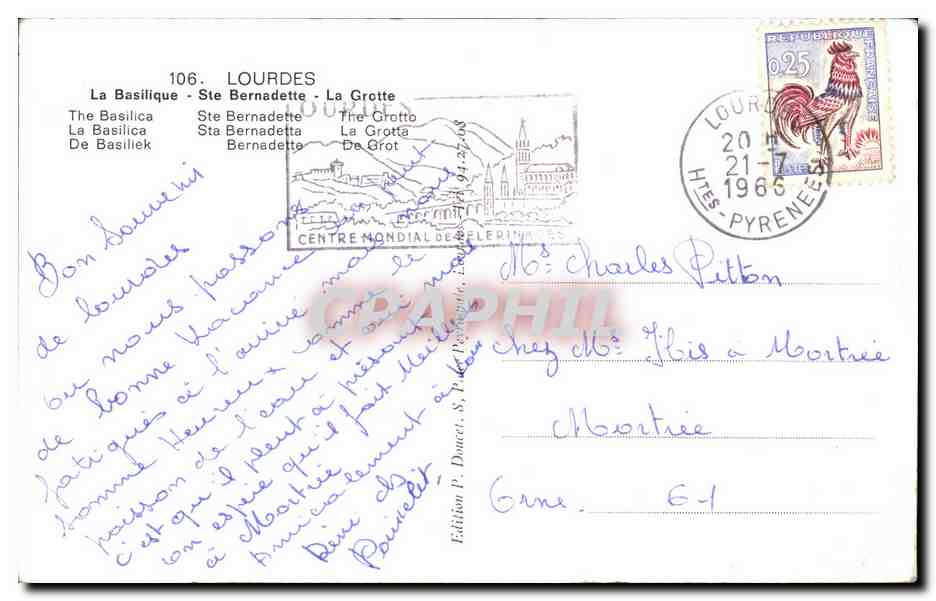 106. LOURDES
La Basilique - Ste Bernadette - La Grotte
The Basilica Ste Bernadette The Grotto
La Basilica Sta Bernadetta La Grotta
De Basiliek Bernadette De Grot
LOURDES
CENTRE MONDIAL DE PELERINAGES
LOURDES
20 H
21-7
1966
HTES-PYRENEES
REPUBLIQUE FRANÇAISE
0,25
Bon Souvenir
de lourdes
ou nous passons
de bonne vacance un peut
fatigués à l'arrivé mais nous
somme Heureux comme le
poisson de l'eau et oui mais
c'est qu'il pleut à présent
on espére qu'il fait Meilleur
à Mortrée
Amicalement à vous
René
CPAPHIL
Edition P. Doucet, S, P. de Peyramale, Lourdes Tél. 94.27.08
Mr Charles Pitton
chez Mr His à Mortrée
Mortrée
Orne. 61